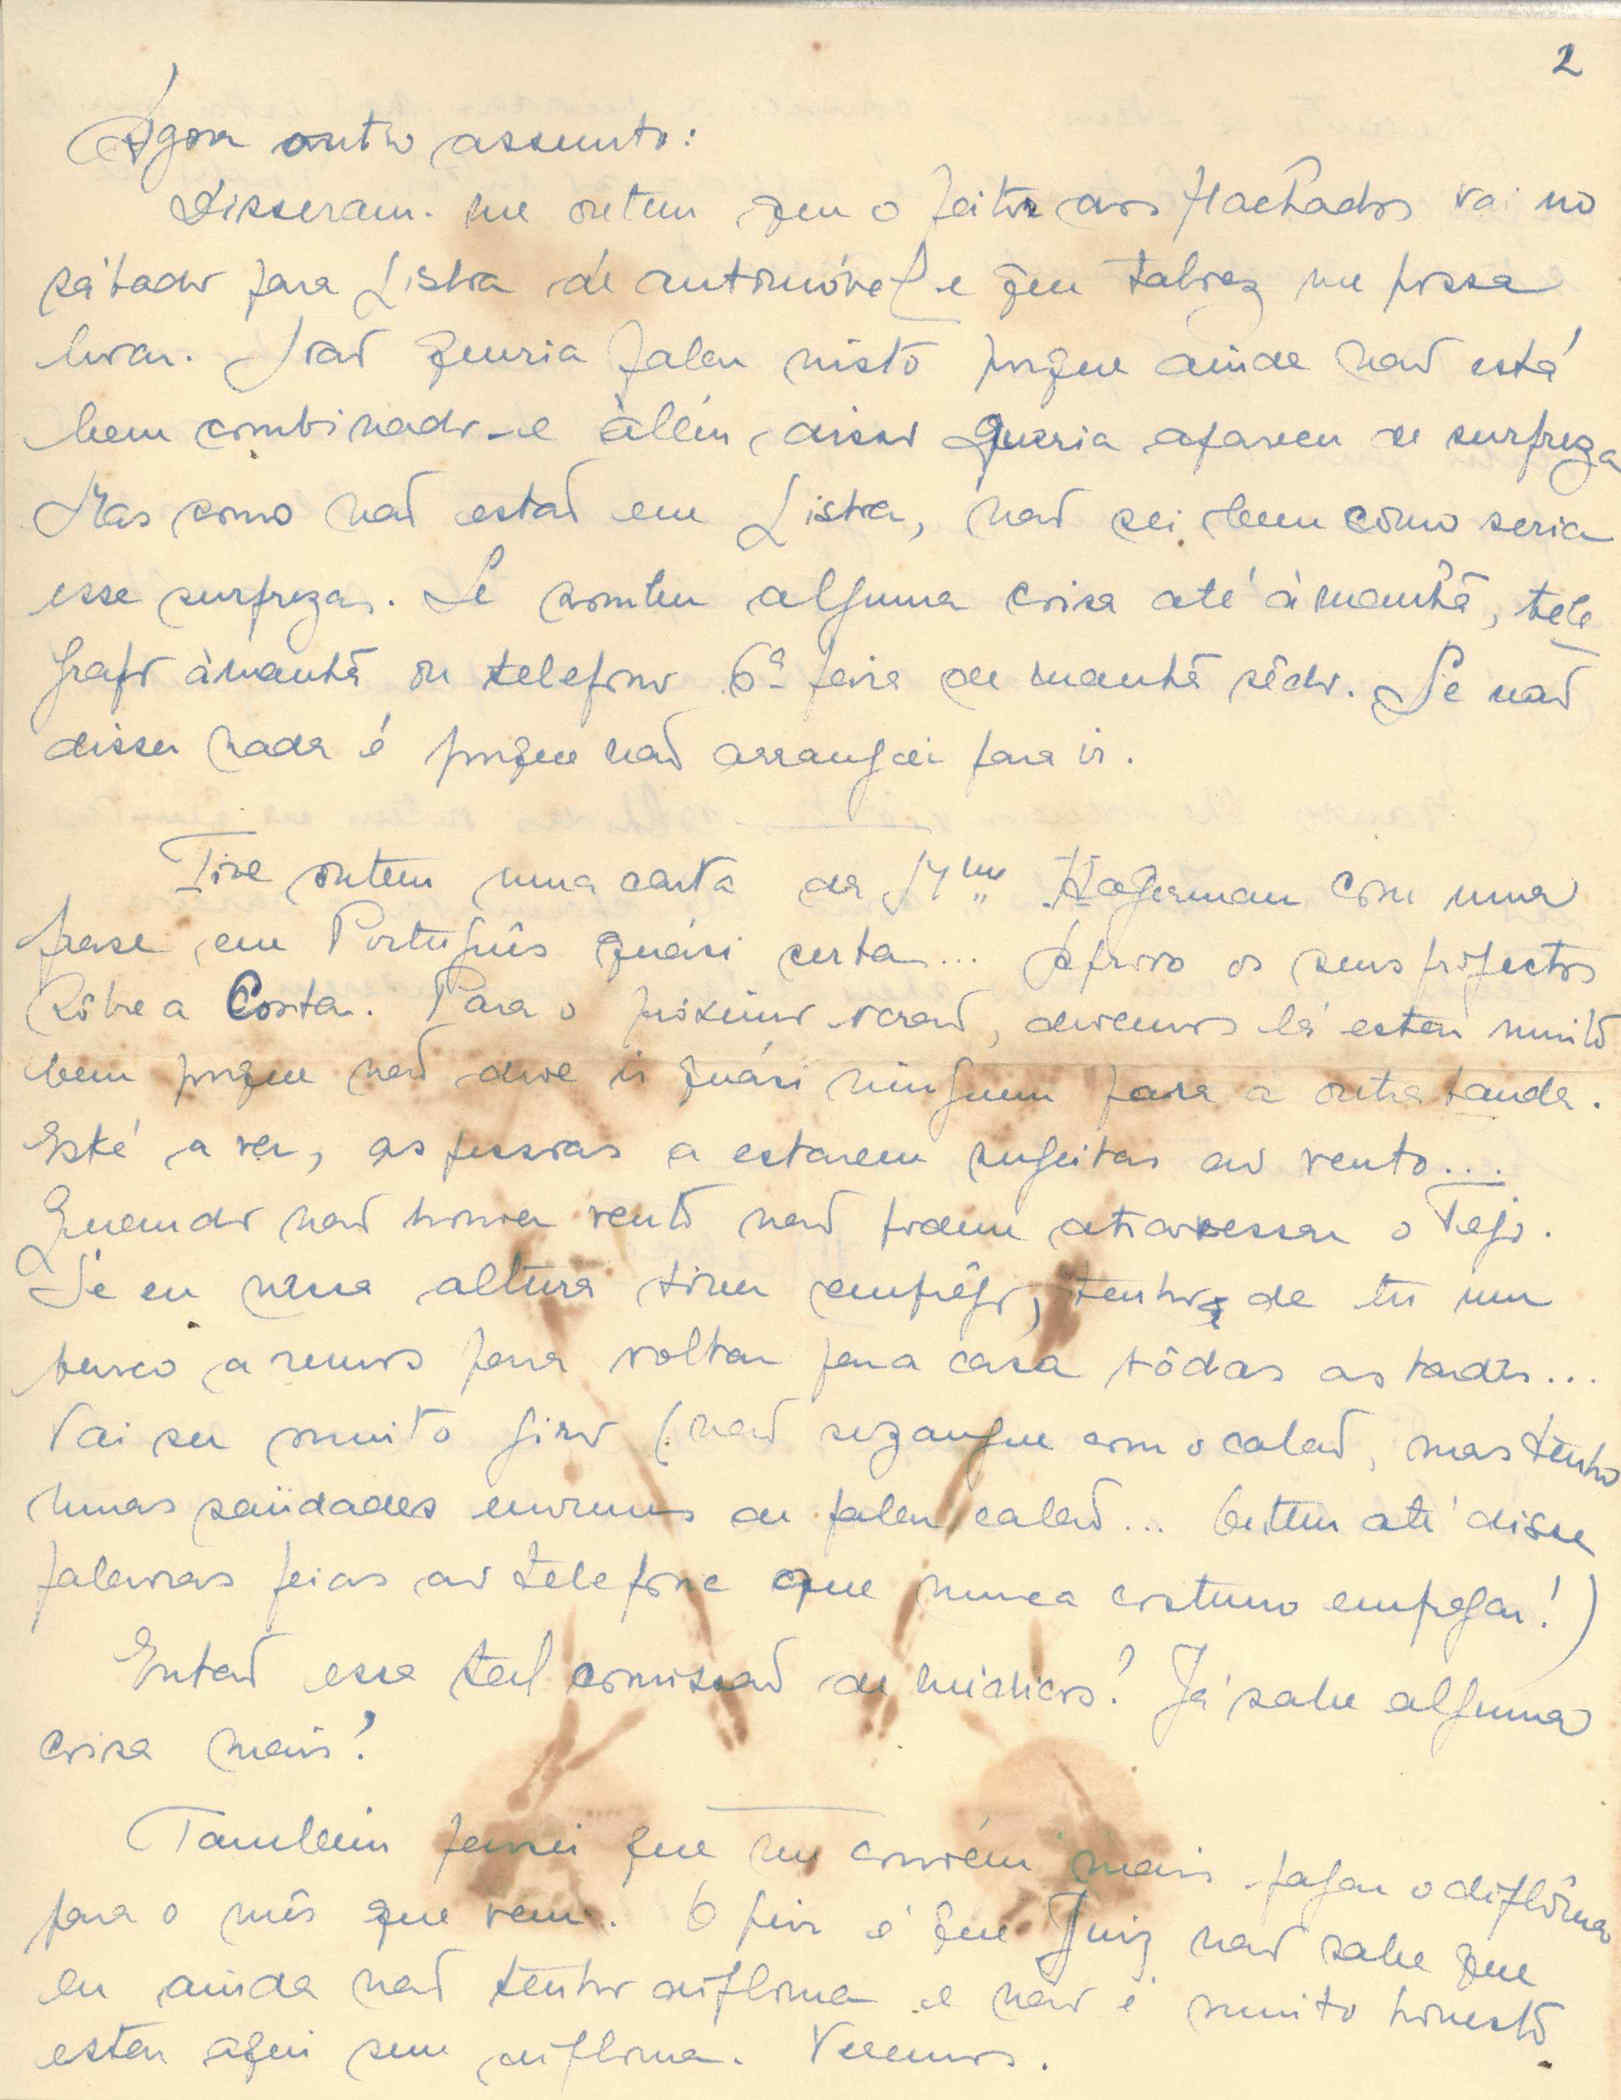 2
Agora outro assunto:
Disseram-me ontem que o feitor dos Machados vai no
sábado para Lisboa de automóvel e que talvez me possa
levar. Não queria falar nisto porque ainda não está
bem combinado e àlém disso queria aparecer de surpreza
Mas como não estão em Lisboa, não sei bem como seria
essa surpreza. Se souber alguma coisa até àmanhã, tele
grafo àmanhã ou telefono 6ª feira de manhã cêdo. Se não
disser nada é porque não arrangei para ir.
Tive ontem uma carta da Mme Hagerman com uma
frase em Português quási certa... Aprovo os seus projectos
sôbre a Costa. Para o próximo verão, devemos lá estar muito
bem porque não deve ir quási ninguem para a outra banda.
Está a ver, as pessoas a estarem sugeitas ao vento...
Quando não houver vento não podem atravessar o Tejo.
Se eu nessa altura tiver emprêgo, tenho de ter um
barco a remos para voltar para casa tôdas as tardes...
Vai ser muito giro (não se zangue com o calão, mas tenho
umas saüdades enormes de falar calão... Ontem até disse
palavras feias ao telefone que nunca costumo empregar!)
Então essa tal comissão de médicos? Já sabe alguma
coisa mais?
Tambem pensei que me convém mais pagar o diplôma
para o mês que vem. O pior é que Juiz não sabe que
eu ainda não tenho diploma e não é muito honesto
estar aqui sem diploma. Veremos.